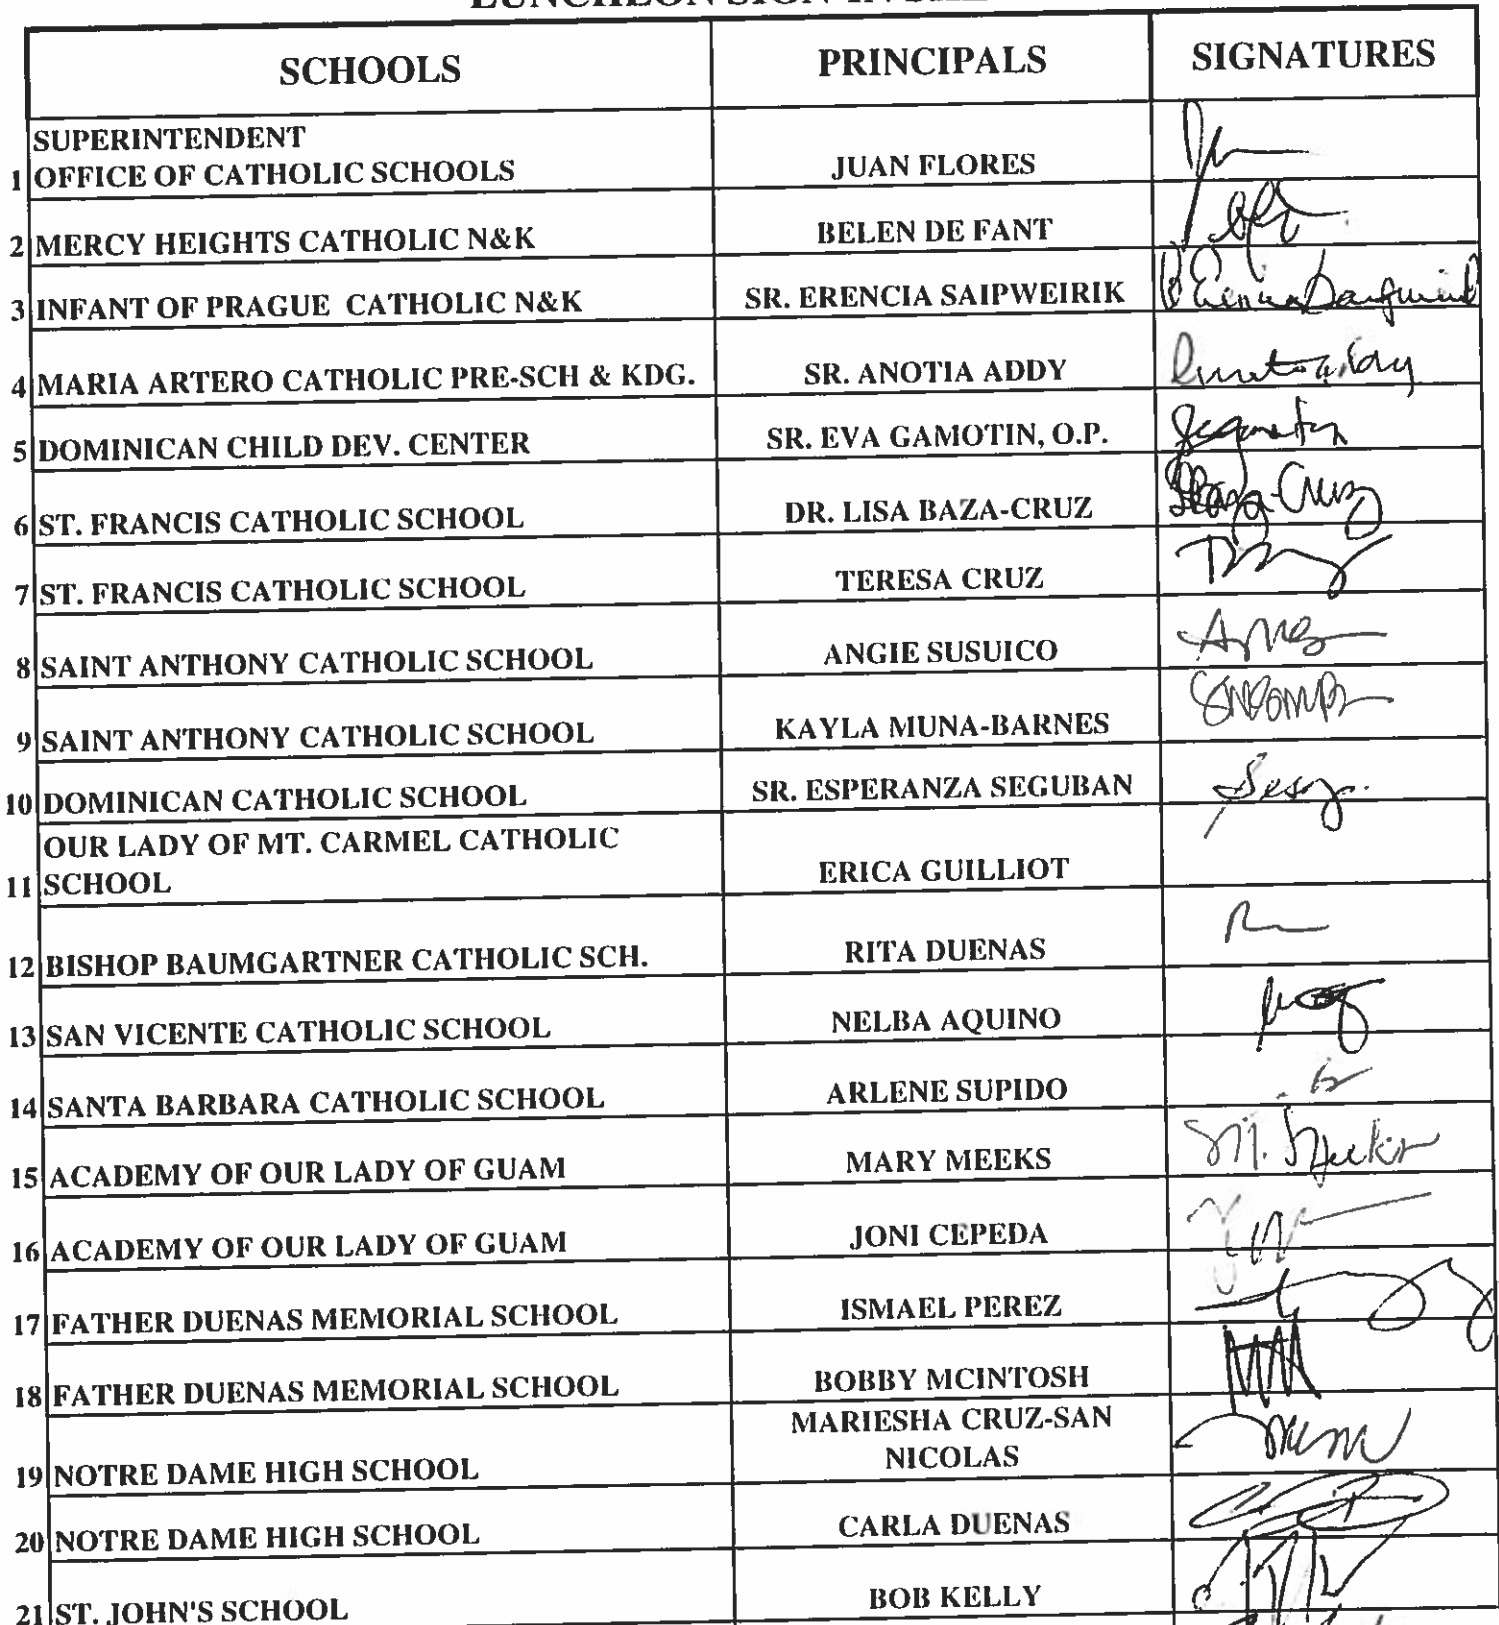 LUNCHEON SIGN-IN
SCHOOLS PRINCIPALS SIGNATURES
SUPERINTENDENT
1 OFFICE OF CATHOLIC SCHOOLS JUAN FLORES
2 MERCY HEIGHTS CATHOLIC N&K BELEN DE FANT
3 INFANT OF PRAGUE CATHOLIC N&K SR. ERENCIA SAIPWEIRIK
4 MARIA ARTERO CATHOLIC PRE-SCH & KDG. SR. ANOTIA ADDY
5 DOMINICAN CHILD DEV. CENTER SR. EVA GAMOTIN, O.P.
6 ST. FRANCIS CATHOLIC SCHOOL DR. LISA BAZA-CRUZ Baza-Cruz
7 ST. FRANCIS CATHOLIC SCHOOL TERESA CRUZ
8 SAINT ANTHONY CATHOLIC SCHOOL ANGIE SUSUICO
9 SAINT ANTHONY CATHOLIC SCHOOL KAYLA MUNA-BARNES
10 DOMINICAN CATHOLIC SCHOOL SR. ESPERANZA SEGUBAN
OUR LADY OF MT. CARMEL CATHOLIC
11 SCHOOL ERICA GUILLIOT
12 BISHOP BAUMGARTNER CATHOLIC SCH. RITA DUENAS
13 SAN VICENTE CATHOLIC SCHOOL NELBA AQUINO
14 SANTA BARBARA CATHOLIC SCHOOL ARLENE SUPIDO
15 ACADEMY OF OUR LADY OF GUAM MARY MEEKS
16 ACADEMY OF OUR LADY OF GUAM JONI CEPEDA
17 FATHER DUENAS MEMORIAL SCHOOL ISMAEL PEREZ
18 FATHER DUENAS MEMORIAL SCHOOL BOBBY MCINTOSH
MARIESHA CRUZ-SAN
19 NOTRE DAME HIGH SCHOOL NICOLAS
20 NOTRE DAME HIGH SCHOOL CARLA DUENAS
21 ST. JOHN'S SCHOOL BOB KELLY